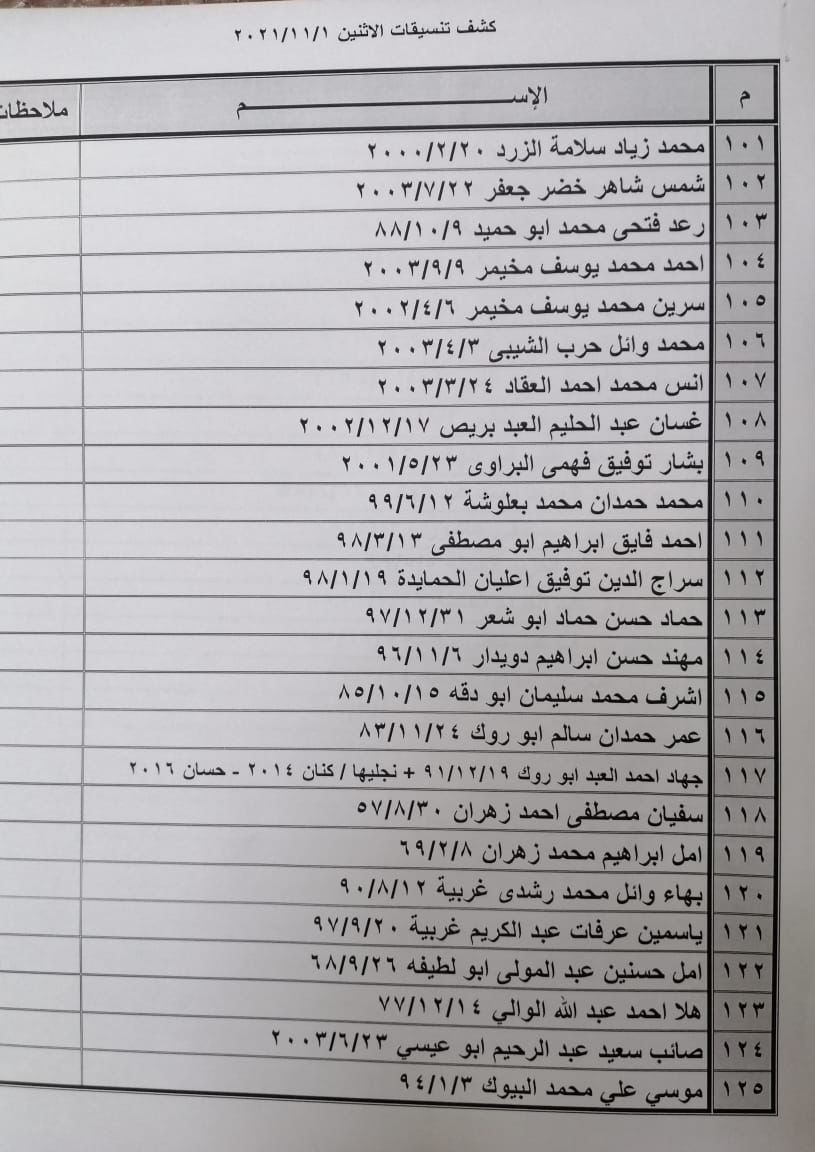 كشف تنسيقات الاثنين ٢٠٢١/١١/١
م الإســـــــم ملاحظات
١٠١ محمد زياد سلامة الزرد ٢٠٠٠/٢/٢٠
١٠٢ شمس شاهر خضر جعفر ٢٠٠٣/٧/٢٢
١٠٣ رعد فتحى محمد ابو حميد ٨٨/١٠/٩
١٠٤ احمد محمد يوسف مخيمر ٢٠٠٣/٩/٩
١٠٥ سرين محمد يوسف مخيمر ٢٠٠٢/٤/٦
١٠٦ محمد وائل حرب الشيبى ٢٠٠٣/٤/٣
١٠٧ انس محمد احمد العقاد ٢٠٠٣/٣/٢٤
١٠٨ غسان عبد الحليم العبد بريص ٢٠٠٢/١٢/١٧
١٠٩ بشار توفيق فهمى البراوى ٢٠٠١/٥/٢٣
١١٠ محمد حمدان محمد بعلوشة ٩٩/٦/١٢
١١١ احمد فايق ابراهيم ابو مصطفى ٩٨/٣/١٣
١١٢ سراج الدين توفيق اعليان الحمايدة ٩٨/١/١٩
١١٣ حماد حسن حماد ابو شعر ٩٧/١٢/٣١
١١٤ مهند حسن ابراهيم دويدار ٩٦/١١/٦
١١٥ اشرف محمد سليمان ابو دقه ٨٥/١٠/١٥
١١٦ عمر حمدان سالم ابو روك ٨٣/١١/٢٤
١١٧ جهاد احمد العبد ابو روك ٩١/١٢/١٩ + نجليها / كنان ٢٠١٤ - حسان ٢٠١٦
١١٨ سفيان مصطفى احمد زهران ٥٧/٨/٣٠
١١٩ امل ابراهيم محمد زهران ٦٩/٢/٨
١٢٠ بهاء وائل محمد رشدى غربية ٩٠/٨/١٢
١٢١ ياسمين عرفات عبد الكريم غربية ٩٧/٩/٢٠
١٢٢ امل حسنين عبد المولى ابو لطيفه ٦٨/٩/٢٦
١٢٣ هلا احمد عبد الله الوالي ٧٧/١٢/١٤
١٢٤ صائب سعيد عبد الرحيم ابو عيسي ٢٠٠٣/٦/٢٣
١٢٥ موسي علي محمد البيوك ٩٤/١/٣